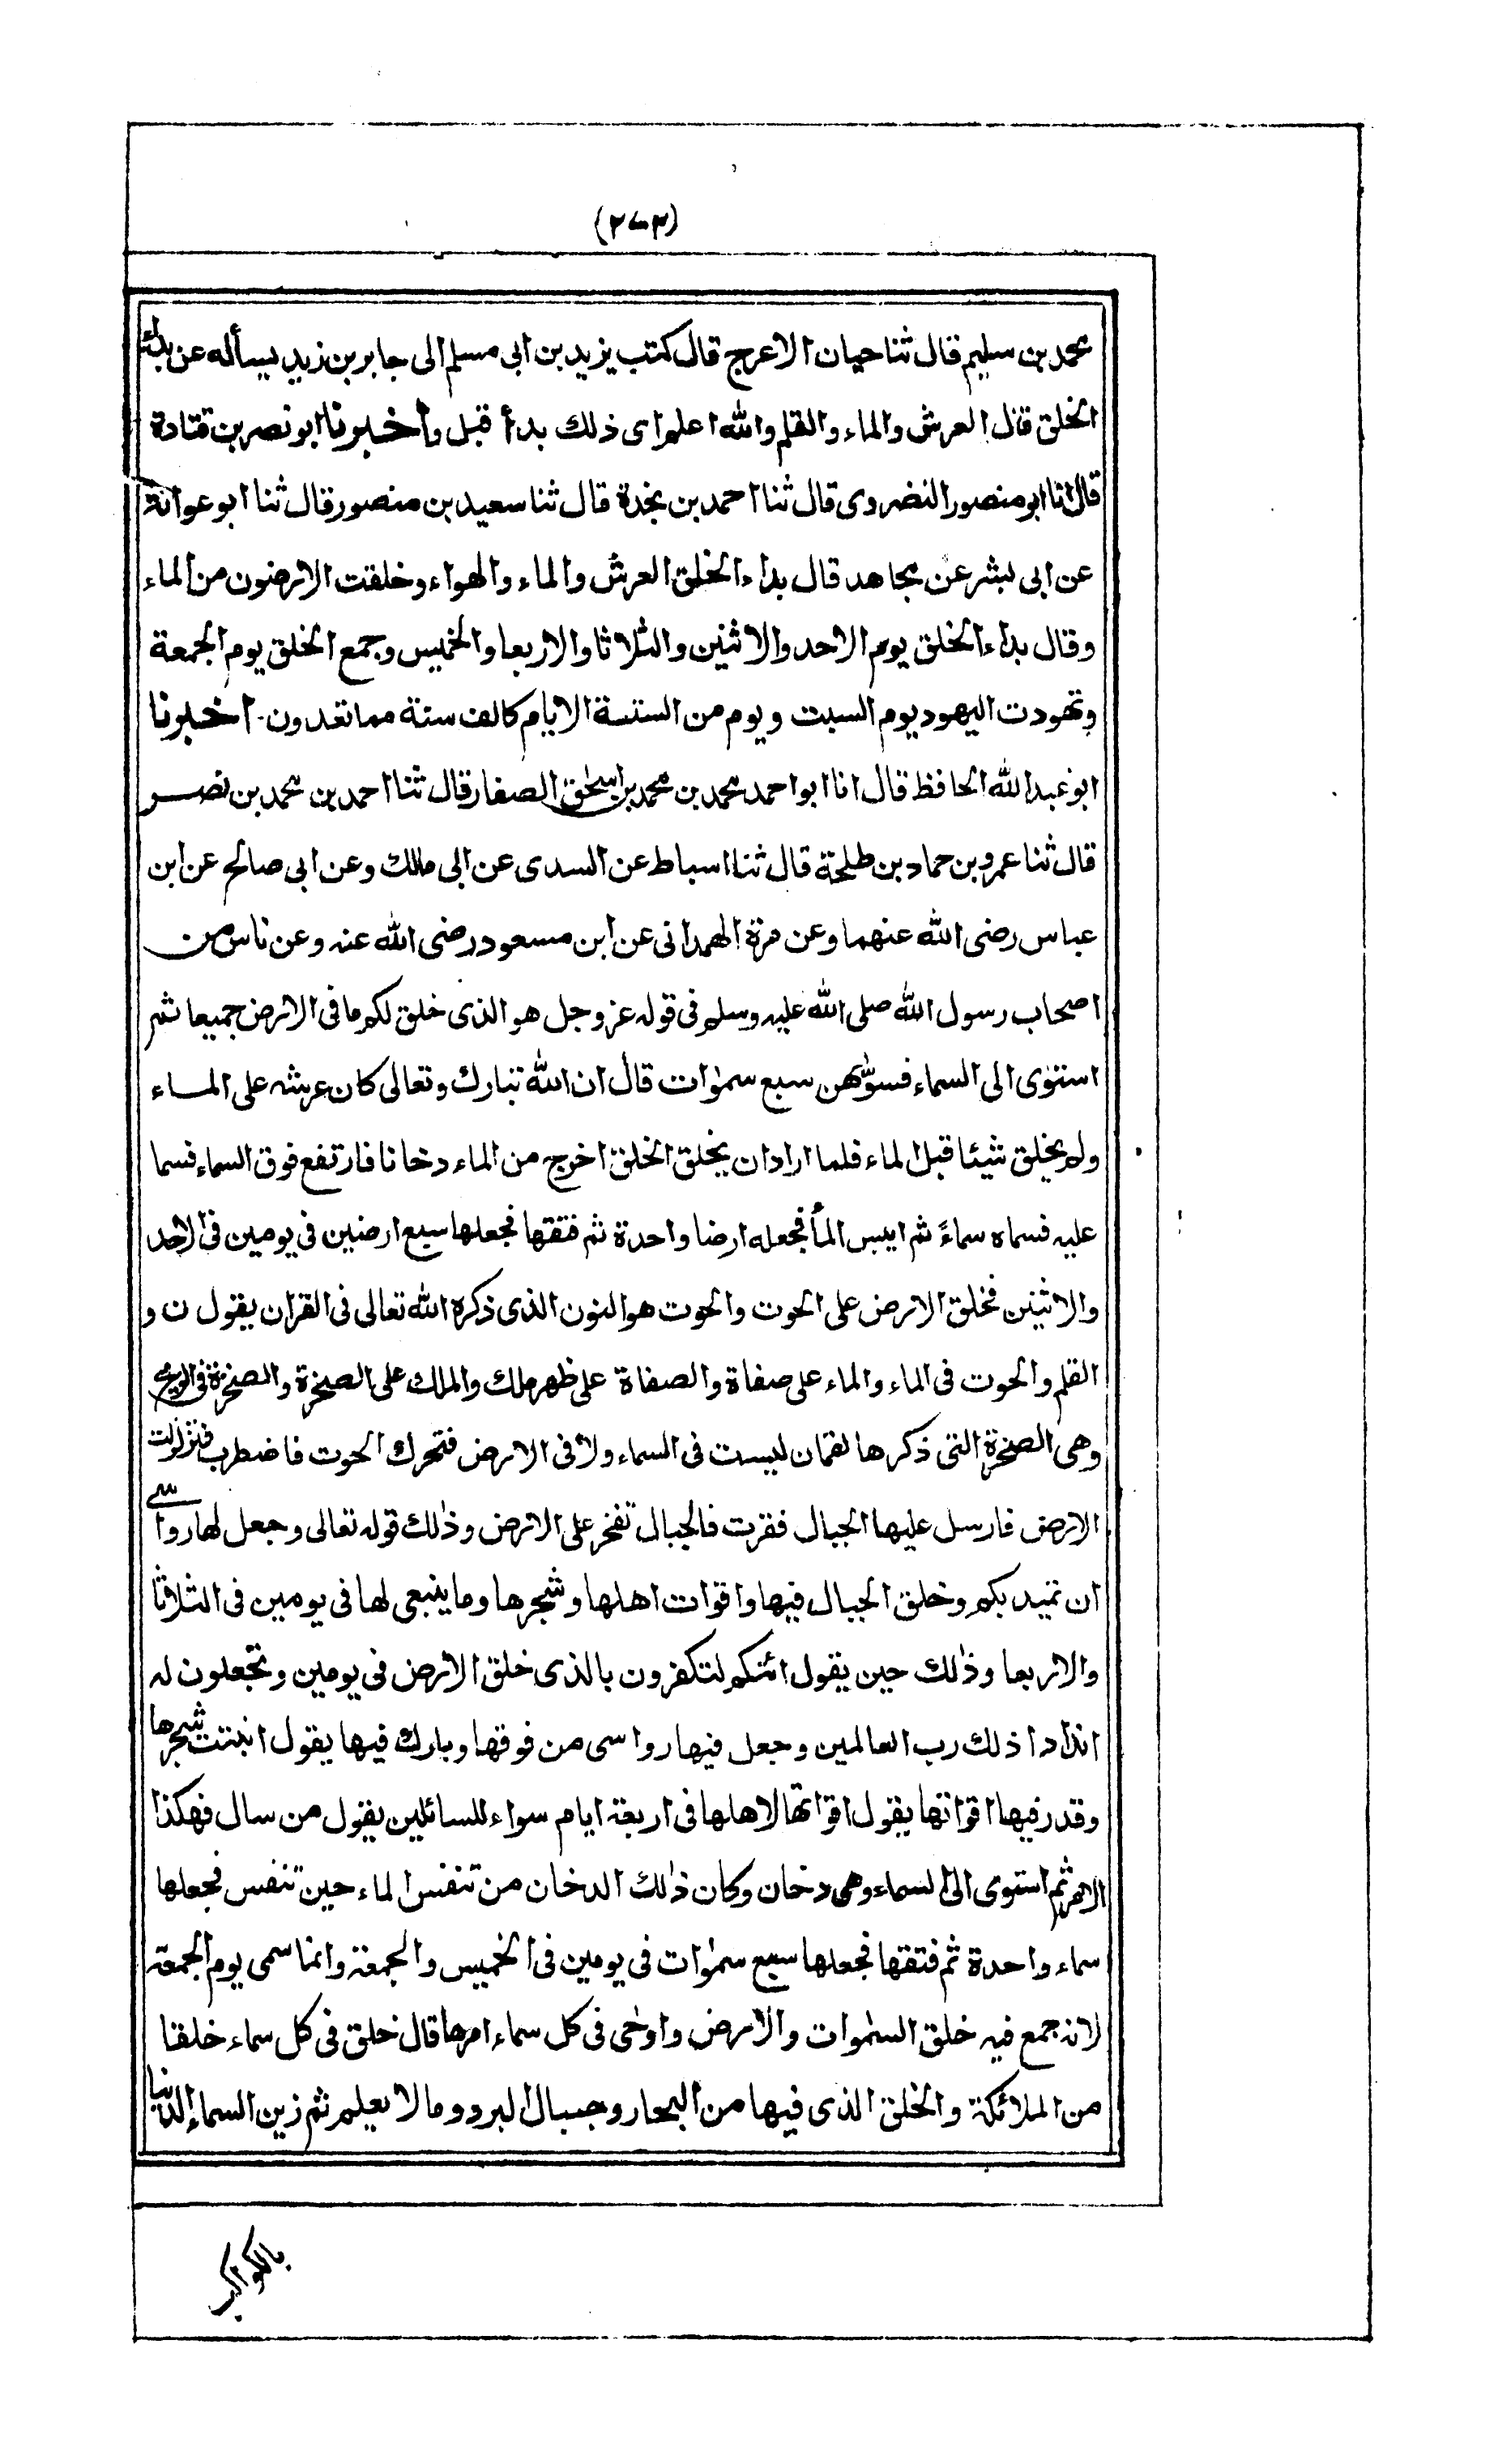 (٢٧٣)
محمد بن سليم قال ثنا حيان الاعرج قال كتب يزيد بن ابى مسلم الى جابر بن زيد يسأله عن بدئ
الخلق قال العرش والماء والقلم والله اعلم اى ذلك بدأ قبل وأخبرنا ابو نصر بن قتادة
قال انا ابو منصور النضروى قال ثنا احمد بن نجدة قال ثنا سعيد بن منصور قال ثنا ابو عوانة
عن ابى بشر عن مجاهد قال بداء الخلق العرش والماء والهواء وخلقت الارضون من الماء
وقال بداء الخلق يوم الاحد والاثنين والثلاثا والاربعا والخميس وجمع الخلق يوم الجمعة
وتهودت اليهود يوم السبت ويوم من الستة الايام كالف سنة مما تعدون. اخبرنا
ابو عبد الله الحافظ قال انا ابو احمد محمد بن محمد بن اسحٰق الصفار قال ثنا احمد بن محمد بن نصر
قال ثنا عمرو بن حماد بن طلحة قال ثنا اسباط عن السدى عن ابى مالك وعن ابى صالح عن ابن
عباس رضى الله عنهما وعن مرة الهمدانى عن ابن مسعود رضى الله عنه وعن ناس من
اصحاب رسول الله صلى الله عليه وسلم فى قوله عز وجل هو الذى خلق لكم ما فى الارض جميعا ثم
استوى الى السماء فسوّٰهن سبع سمٰوات قال ان الله تبارك وتعالى كان عرشه على الماء
ولم يخلق شيئا قبل الماء فلما اراد ان يخلق الخلق اخرج من الماء دخانا فارتفع فوق السماء فسما
عليه فسماه سماءً ثم ايبس المأ فجعله ارضا واحدة ثم فتقها فجعلها سبع ارضين فى يومين فى الاحد
والاثنين فخلق الارض على الحوت والحوت هو النون الذى ذكره الله تعالى فى القران يقول ن و
القلم والحوت فى الماء والماء على صفاة والصفاة على ظهر ملك والملك على الصخرة والصخرة فى الريح
وهى الصخرة التى ذكرها لقمان ليست فى السماء ولا فى الارض فتحرك الحوت فاضطرب فتزلزلت
الارض فارسل عليها الجبال فقرت فالجبال تفخر على الارض وذٰلك قوله تعالى وجعل لها رواسى
ان تميد بكم وخلق الجبال فيها واقوات اهلها وشجرها وما ينبغى لها فى يومين فى الثلاثا
والاربعا وذٰلك حين يقول ائنكم لتكفرون بالذى خلق الارض فى يومين وتجعلون له
اندادا ذلك رب العالمين وجعل فيها رواسى من فوقها وبارك فيها يقول انبتت شجرها
وقدر فيها اقواتها يقول اقواتها لاهلها فى اربعة ايام سواء للسائلين يقول من سال فهكذا
الامر ثم استوى الى السماء وهى دخان وكان ذٰلك الدخان من تنفس الماء حين تنفس فجعلها
سماء واحدة ثم فتقها فجعلها سبع سمٰوات فى يومين فى الخميس والجمعة وانما سمى يوم الجمعة
لانه جمع فيه خلق السمٰوات والارض واوحٰى فى كل سماء امرها قال خلق فى كل سماء خلقا
من الملائكة والخلق الذى فيها من البحار وجبال البرد وما لا يعلم ثم زين السماء الدنيا
بالكواكب